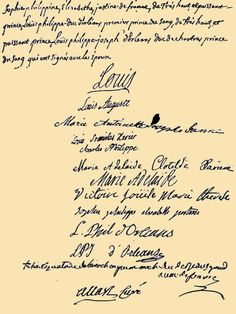 Sophie philippine Elizabeth justine de france, du très haut et puissant
prince, Louis philippe duc d'orleans premier prince du sang, de très haut et
puissant prince, Louis philippe joseph d'orleans duc de chartres prince
du sang qui ont signés avec les epoux
Louis
Louis Auguste
Marie Antoinette Josepha Jeanne
Louis Stanislas Xavier
Charles Philippe
Marie Adelaide Clotilde Xaviere
Marie Adelaide
Victoire Louise Marie Therese
Sophie philippe elisabeth justine
L. Phil d'Orleans
LPJ d'Orleans
de france
allart Curé